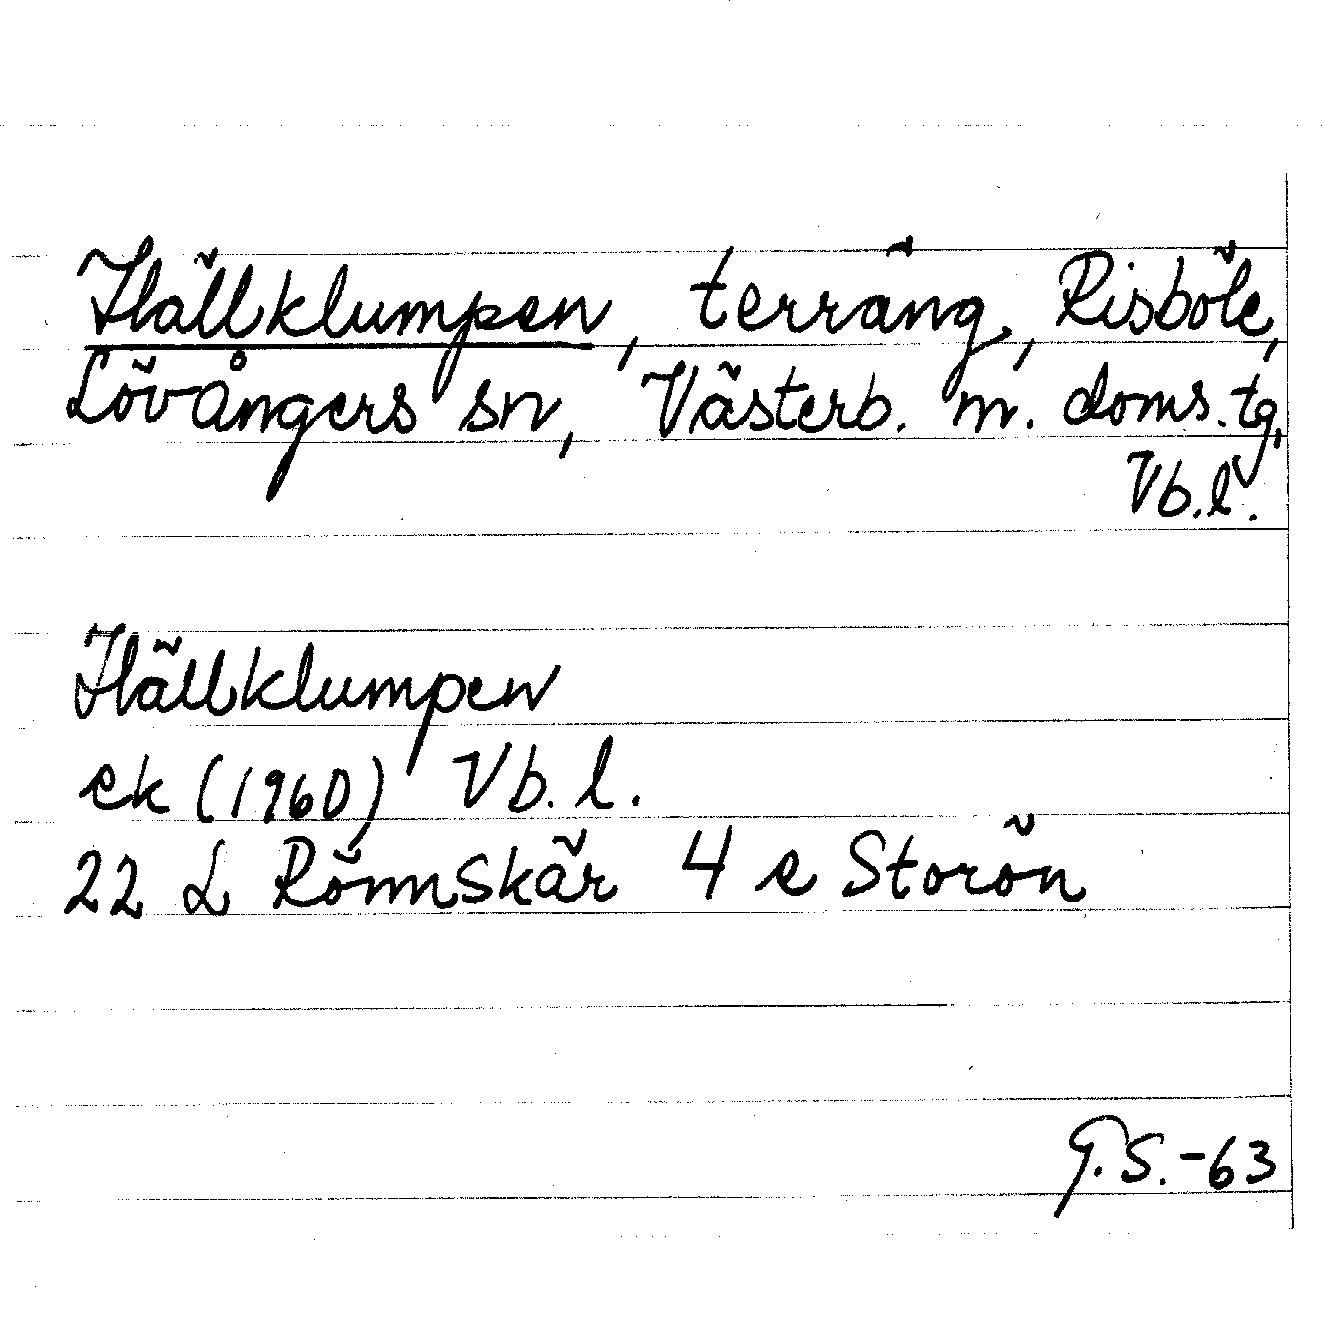 Hällklumpen, terräng, Risböle,
Lövångers sn, Västerb. m. doms. tg,
Vb.l.
Hällklumpen
ek (1960) Vb. l.
22 L Rönnskär 4 e Storön
G.S.-63